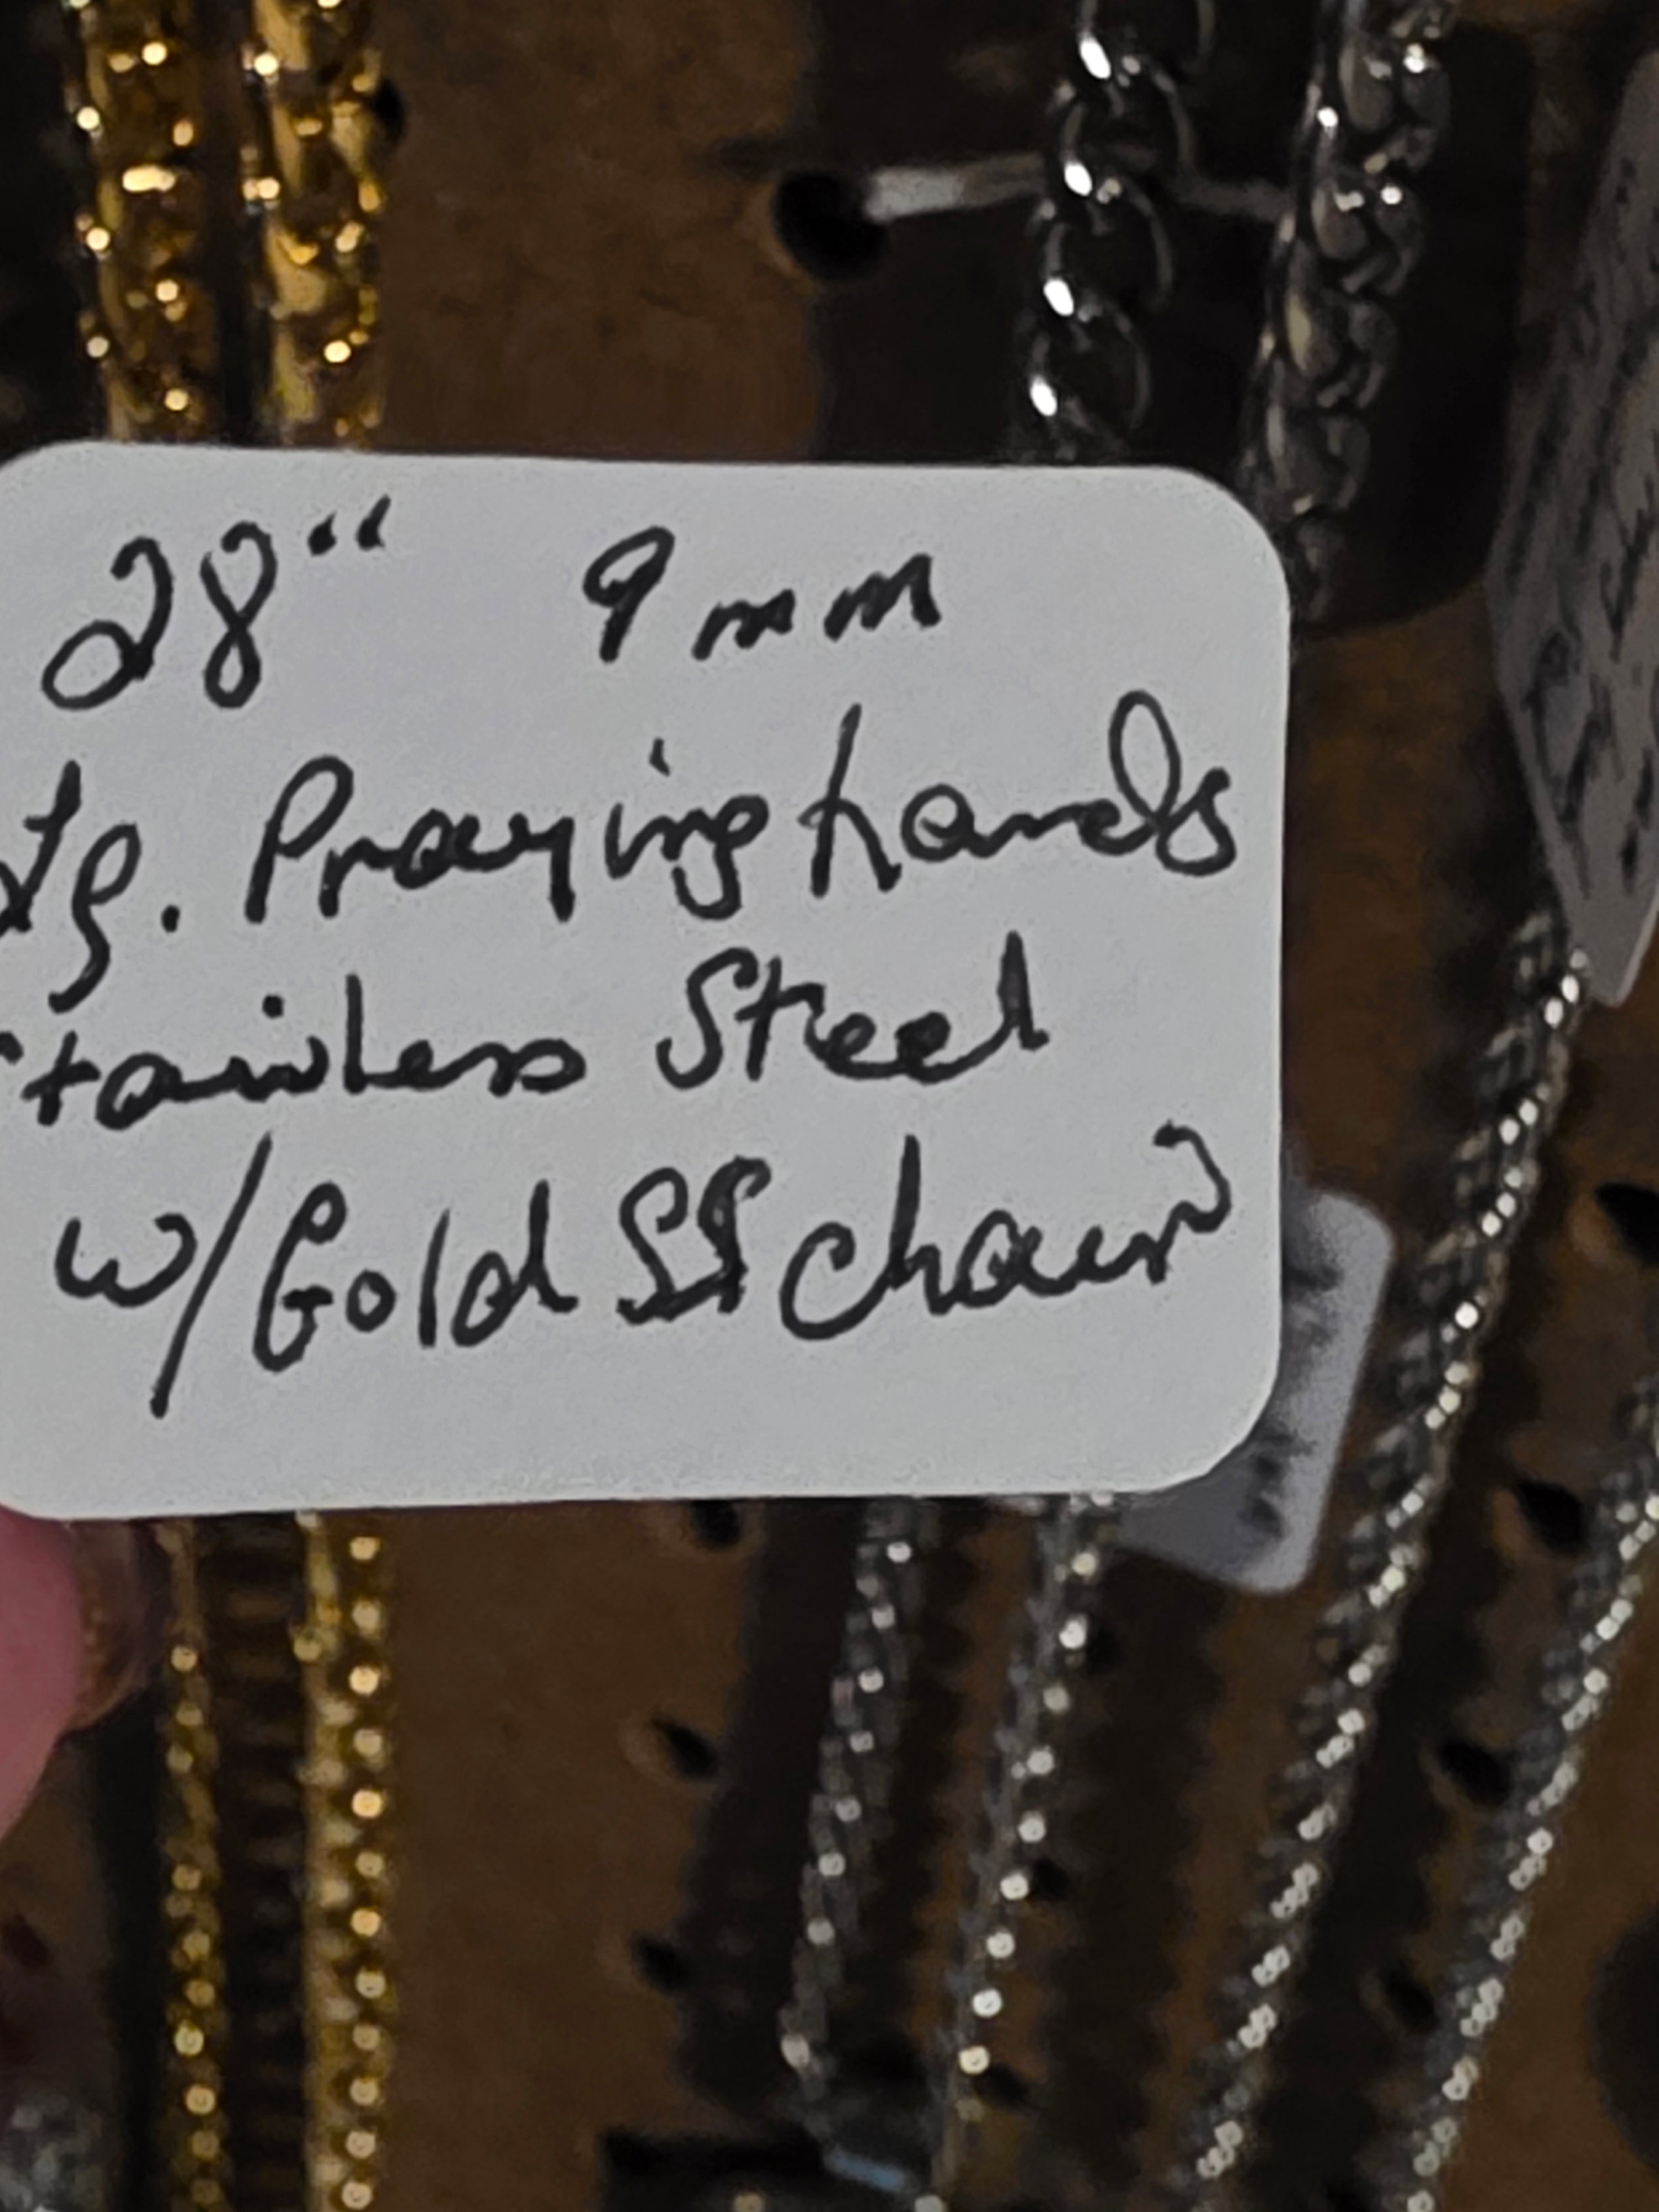 28" 9mm
Lg. Praying hands
Stainless Steel
w/Gold SS chain